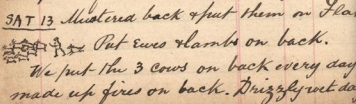 SAT 13 Mustered back & put them on Fla
Put Ewes & lambs on back.
We put the 3 cows on back every day
made up fires on back. Drizzly wet da